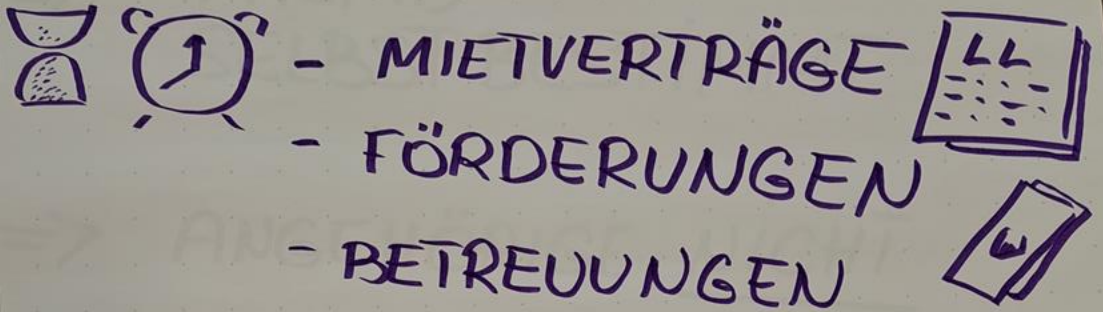 - MIETVERTRÄGE
LL
- FÖRDERUNGEN
- BETREUUNGEN